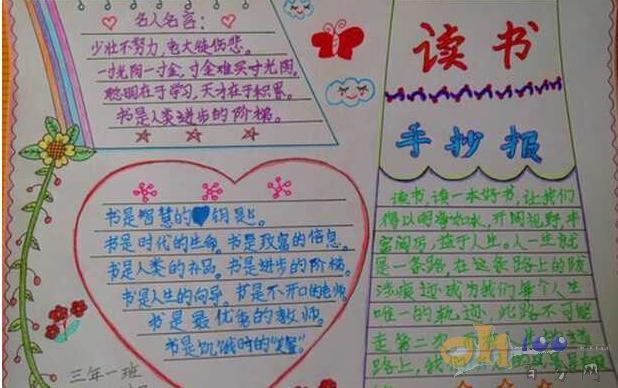 名人名言:
少壮不努力,老大徒伤悲。
一寸光阴一寸金,寸金难买寸光阴。
聪明在于学习,天才在于积累。
书是人类进步的阶梯。
书是智慧的钥匙。
书是时代的生命。书是致富的信息。
书是人类的补品。书是进步的阶梯。
书是人生的向导。书是不开口的老师。
书是最优秀的教师。
书是饥饿时的“
三年一班
读书
手抄报
读书,读一本好书,让我们
得以明净如水,开阔视野,丰
富阅历,益于人生。人一生就
是一条路,在这条路上的跋
涉痕迹成为我们每个人生
唯一的轨迹,此路不可能
走第二次
路上,我